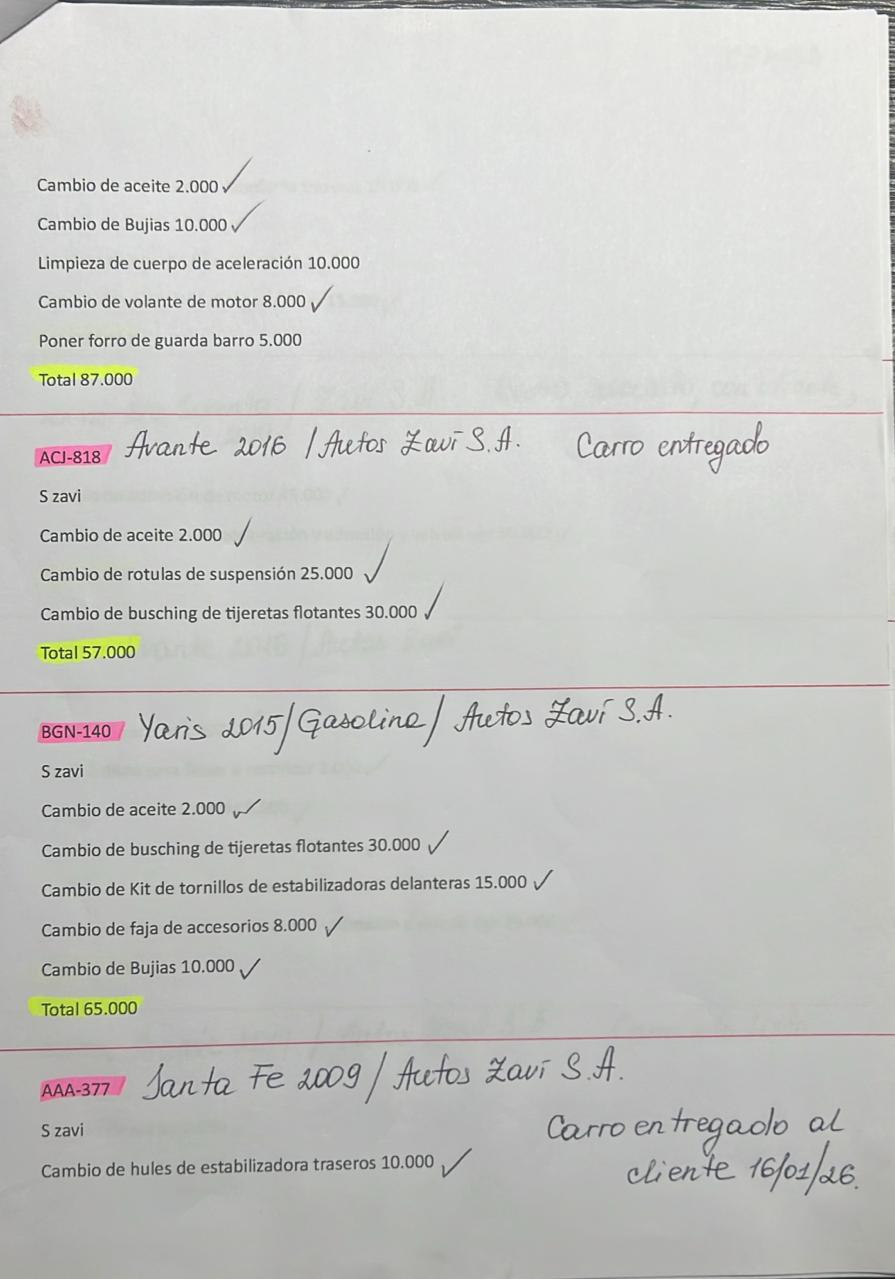 Cambio de aceite 2.000 ✓
Cambio de Bujias 10.000 ✓
Limpieza de cuerpo de aceleración 10.000
Cambio de volante de motor 8.000 ✓
Poner forro de guarda barro 5.000
Total 87.000
ACJ-818 Avante 2016 / Autos Zaví S.A. Carro entregado
S zavi
Cambio de aceite 2.000 ✓
Cambio de rotulas de suspensión 25.000 ✓
Cambio de busching de tijeretas flotantes 30.000 ✓
Total 57.000
BGN-140 Yaris 2015/Gasolina/ Autos Zaví S.A.
S zavi
Cambio de aceite 2.000 ✓
Cambio de busching de tijeretas flotantes 30.000 ✓
Cambio de Kit de tornillos de estabilizadoras delanteras 15.000 ✓
Cambio de faja de accesorios 8.000 ✓
Cambio de Bujias 10.000 ✓
Total 65.000
AAA-377 Santa Fe 2009 / Autos Zaví S.A.
S zavi
Carro entregado al
Cambio de hules de estabilizadora traseros 10.000 ✓
cliente 16/01/26.